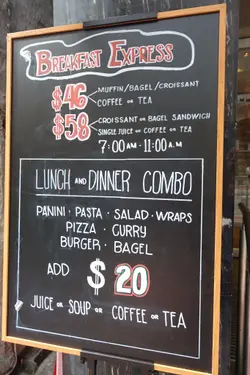 BREAKFAST EXPRESS
$46 MUFFIN/BAGEL/CROISSANT
COFFEE OR TEA
$58 CROISSANT OR BAGEL SANDWICH
SINGLE JUICE OR COFFEE OR TEA
7:00 AM - 11:00 A.M
LUNCH AND DINNER COMBO
PANINI · PASTA · SALAD · WRAPS
PIZZA · CURRY
BURGER · BAGEL
ADD $20
JUICE OR SOUP OR COFFEE OR TEA